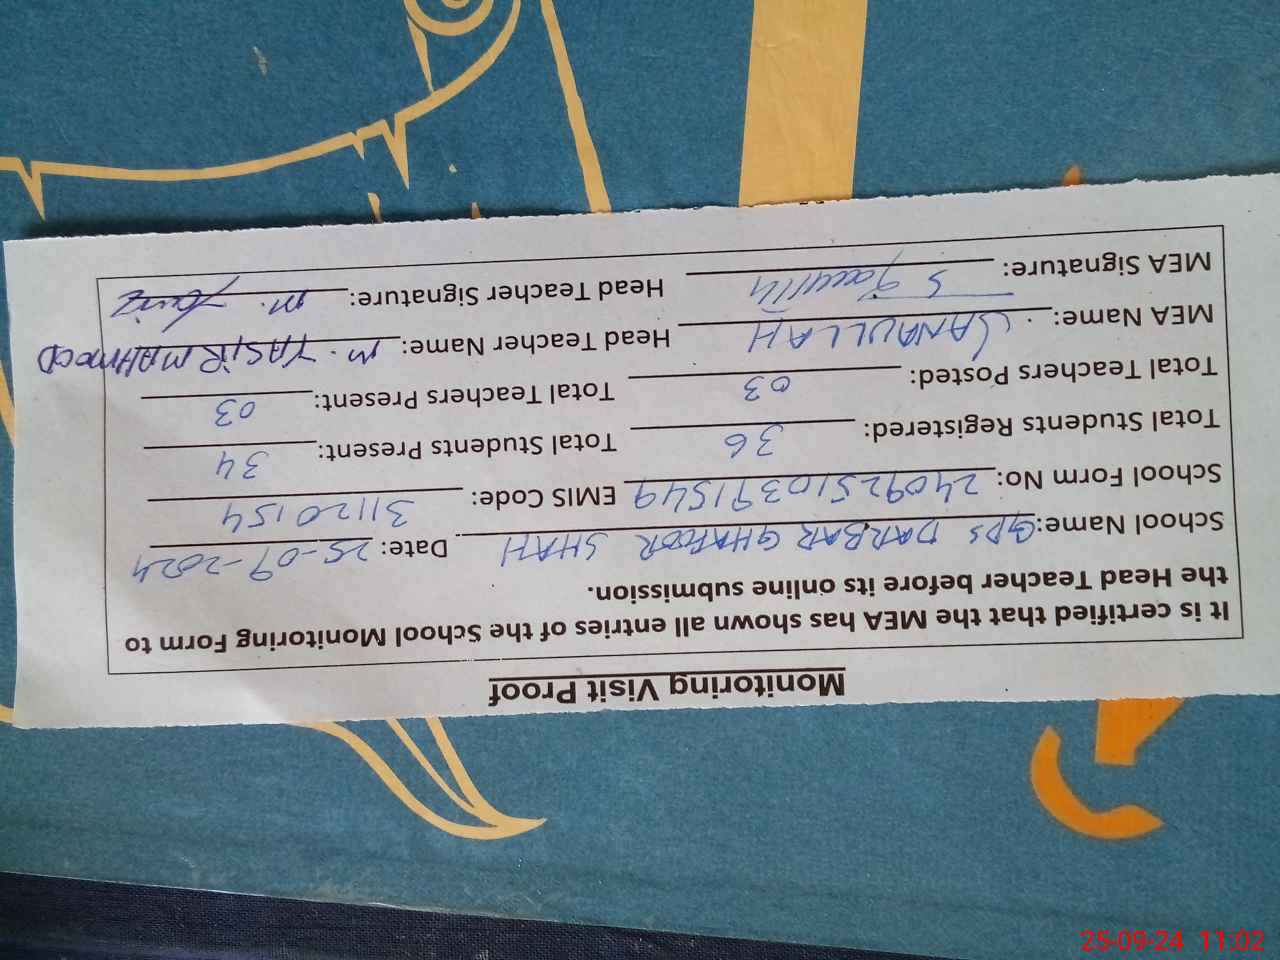 Monitoring Visit Proof
It is certified that the MEA has shown all entries of the School Monitoring Form to
the Head Teacher before its online submission.
School Name: GPS DARBAR GHAFOOR SHAH Date: 25-09-2024
School Form No: 24092510391549 EMIS Code: 31120154
Total Students Registered: 36 Total Students Present: 34
Total Teachers Posted: 03 Total Teachers Present: 03
MEA Name: SANAULLAH Head Teacher Name: M. YASIR MAHMOOD
MEA Signature: Head Teacher Signature: M.
25-09-24 11:02